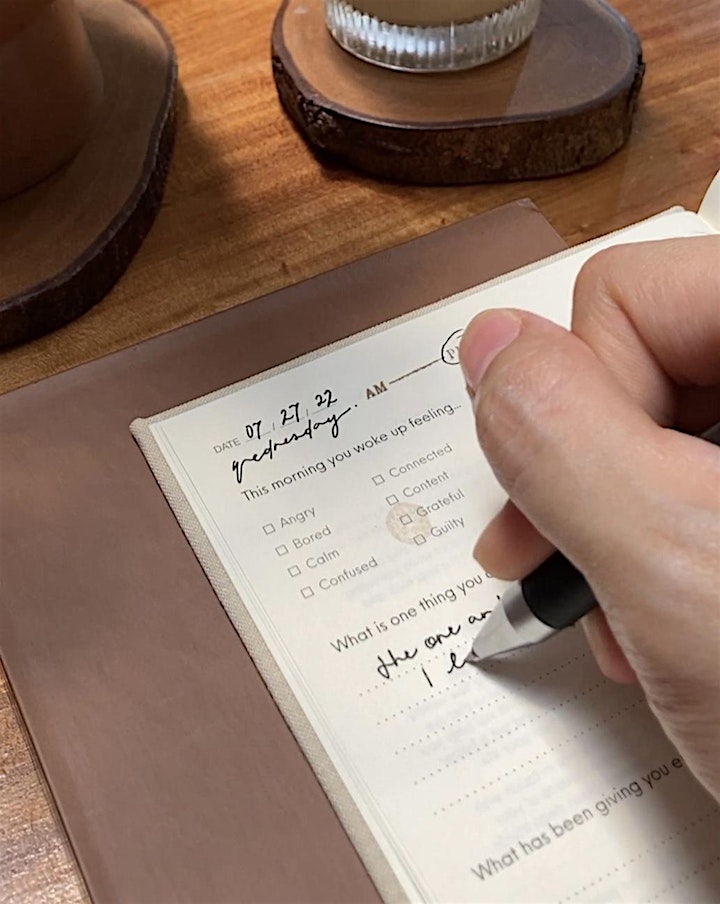 DATE 07 / 27 / 22 AM
wednesday.
This morning you woke up feeling...
Angry
Bored
Calm
Confused
Connected
Content
Grateful
Guilty
What is one thing you
the one
I
What has been giving you